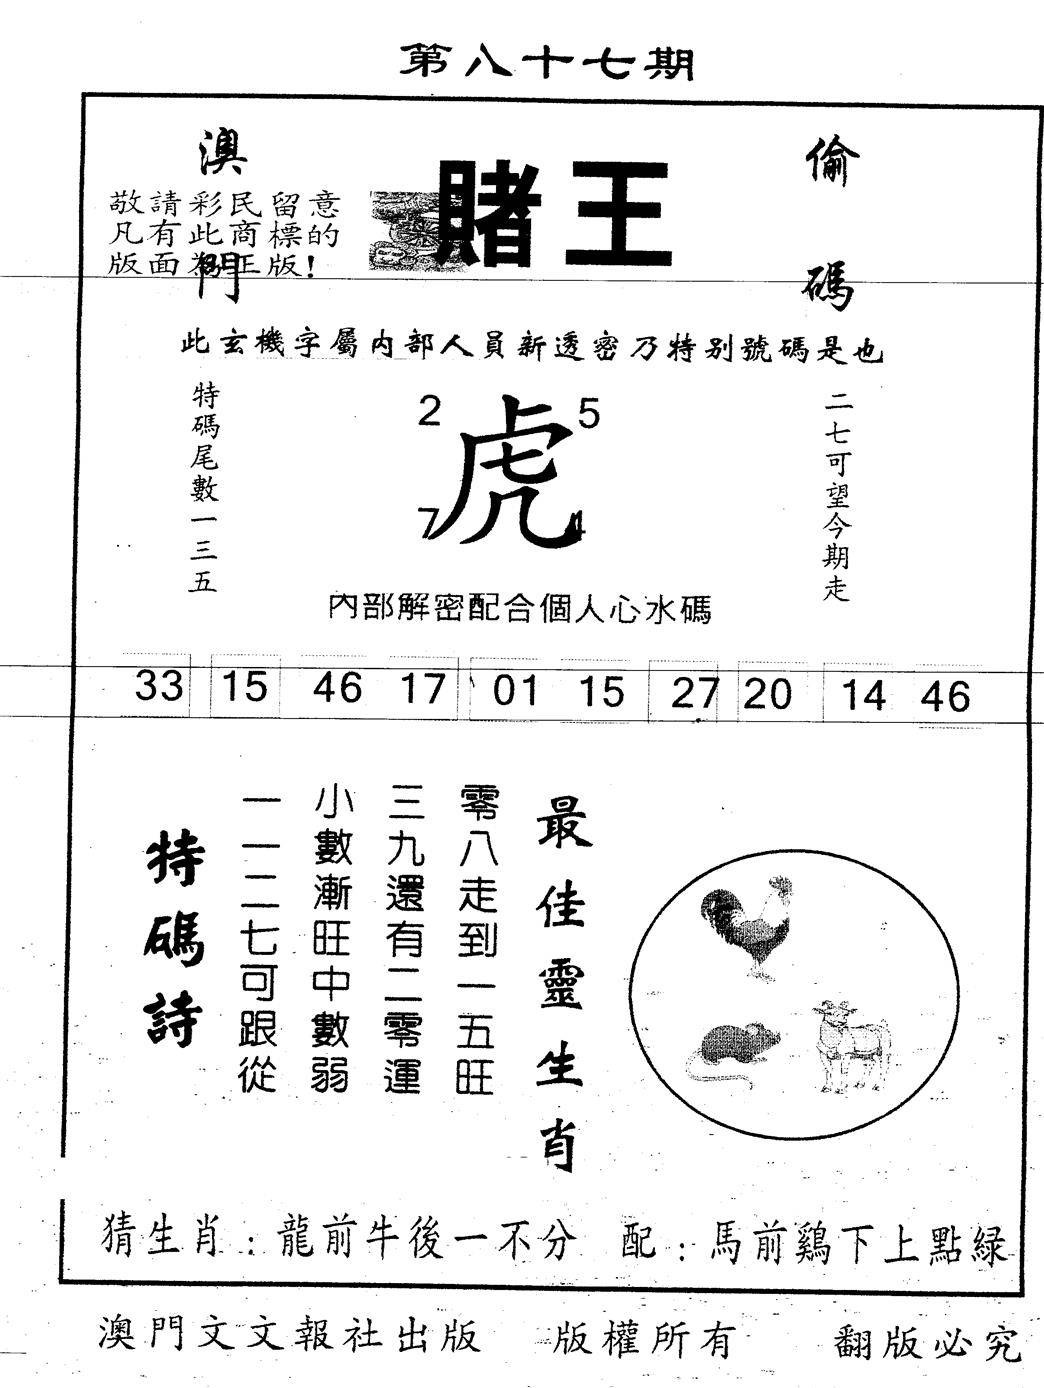 第八十七期
澳門
賭王
偷碼
敬請彩民留意
凡有此商標的
版面為正版!
此玄機字屬內部人員新透密乃特别號碼是也
特碼尾數一三五
2 5
虎
7 4
二七可望今期走
內部解密配合個人心水碼
33 15 46 17 01 15 27 20 14 46
最佳靈生肖
零八走到一五旺
三九還有二零運
小數漸旺中數弱
一一二七可跟從
特碼詩
猜生肖:龍前牛後一不分 配:馬前鷄下上點緑
澳門文文報社出版 版權所有 翻版必究